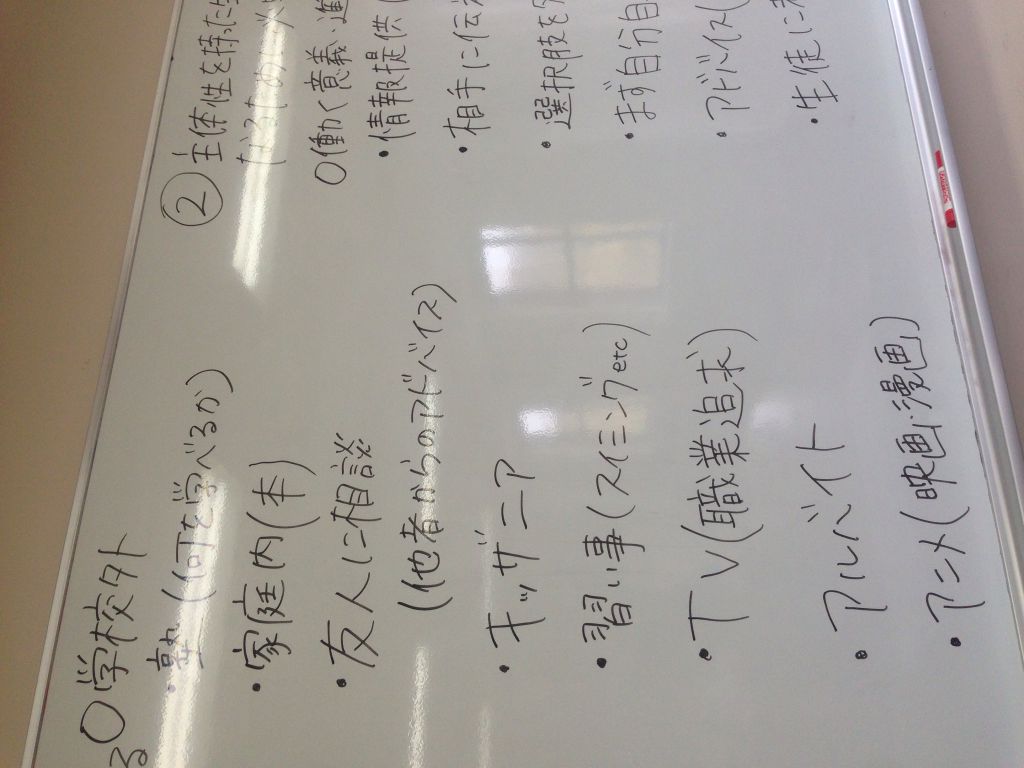 る
〇学校外
・塾(何を学べるか)
・家庭内(本)
・友人に相談
(他者からのアドバイス)
・キッザニア
・習い事(スイミングetc)
・TV(職業追求)
・アルバイト
・アニメ(映画・漫画)
② 主体性を持った
なるため
〇働く意義・進
・情報提供(
・相手に伝
・選択肢を
・まず自分自
・アドバイス(
・生徒に